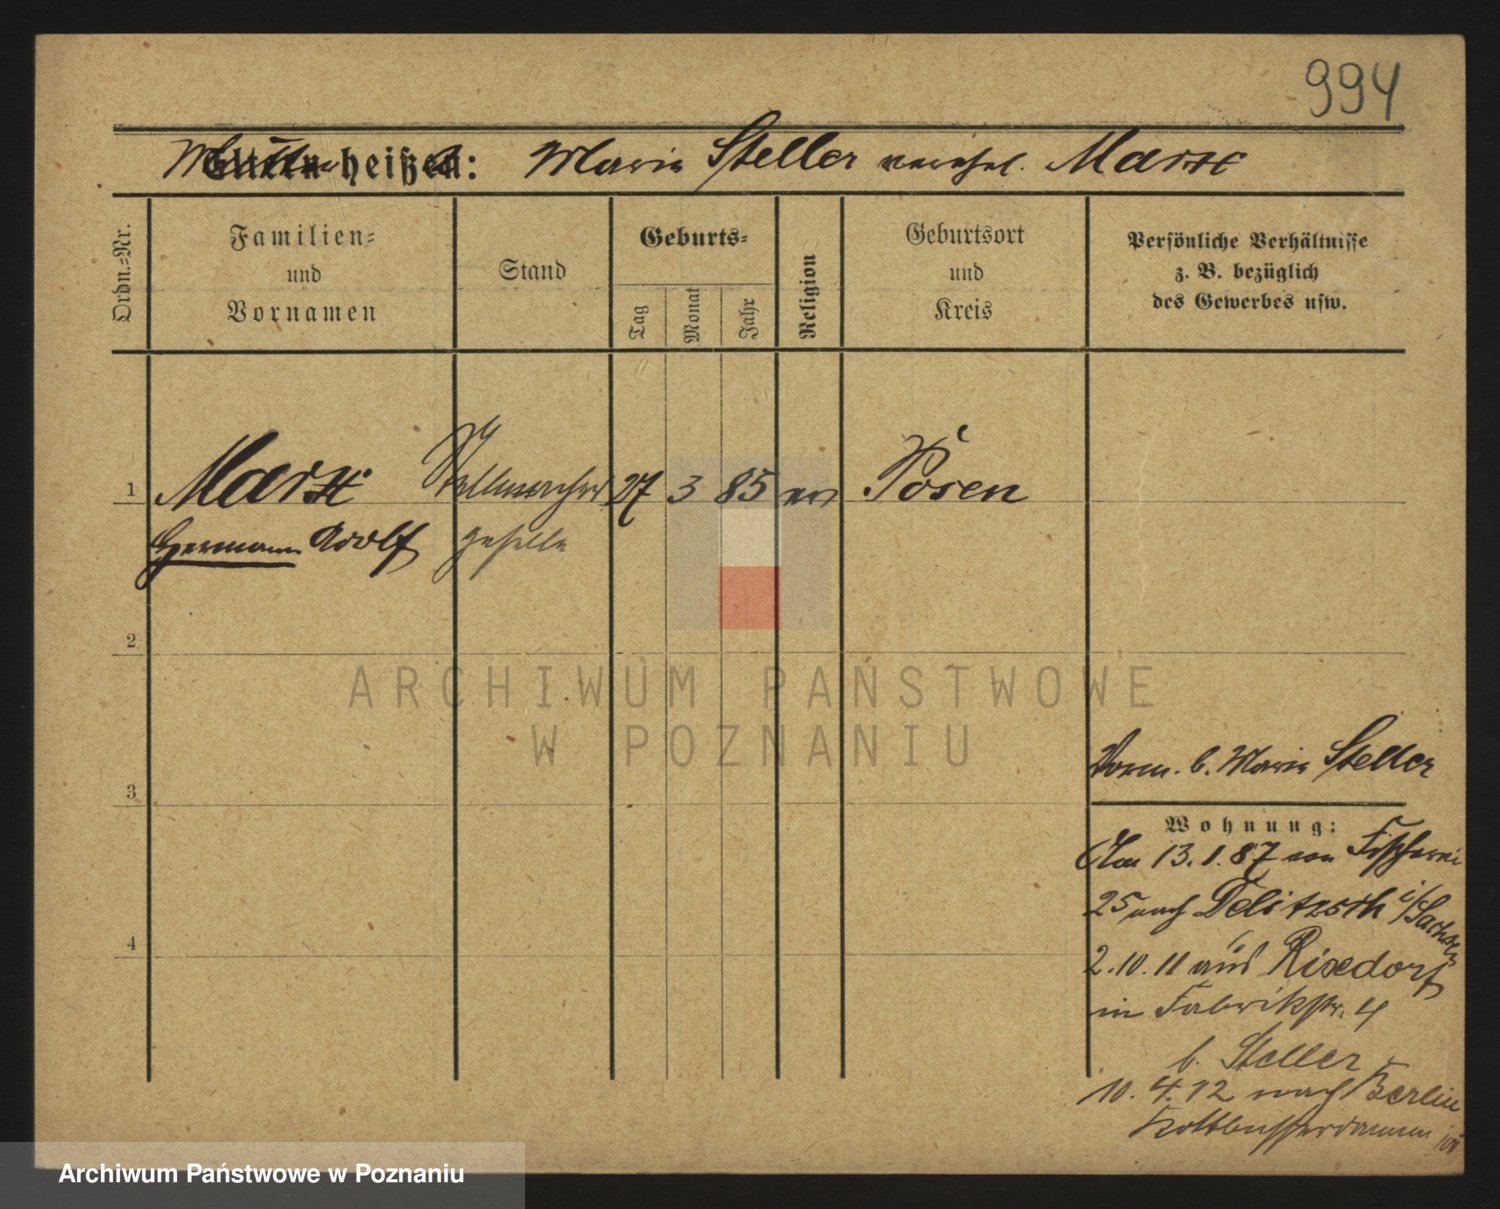 994
Mutter heißt: Marie Steller verehel. Marx
Ordn.-Nr.
Familien-
und
Vornamen
Stand
Geburts-
Tag
Monat
Jahr
Religion
Geburtsort
und
Kreis
Persönliche Verhältnisse
z. B. bezüglich
des Gewerbes usw.
1 Marx Stellmacher 27 3 85 ev Posen
Hermann Adolf geselle
2
3
4
Vorm. b. Marie Steller
Wohnung:
Am 13.1.87 von Fischerei
25 nach Delitzsch i/Sachsen
2.10.11 aus Rixdorf
in Fabrikstr. 4
b. Steller
10.4.12 nach Berlin
Kottbusserdamm
ARCHIWUM PAŃSTWOWE
W POZNANIU
Archiwum Państwowe w Poznaniu